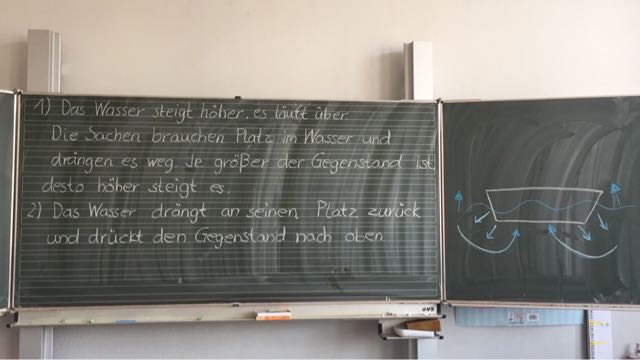 1) Das Wasser steigt höher, es läuft über
Die Sachen brauchen Platz im Wasser und
drängen es weg. Je größer der Gegenstand ist,
desto höher steigt es.
2) Das Wasser drängt an seinen Platz zurück
und drückt den Gegenstand nach oben